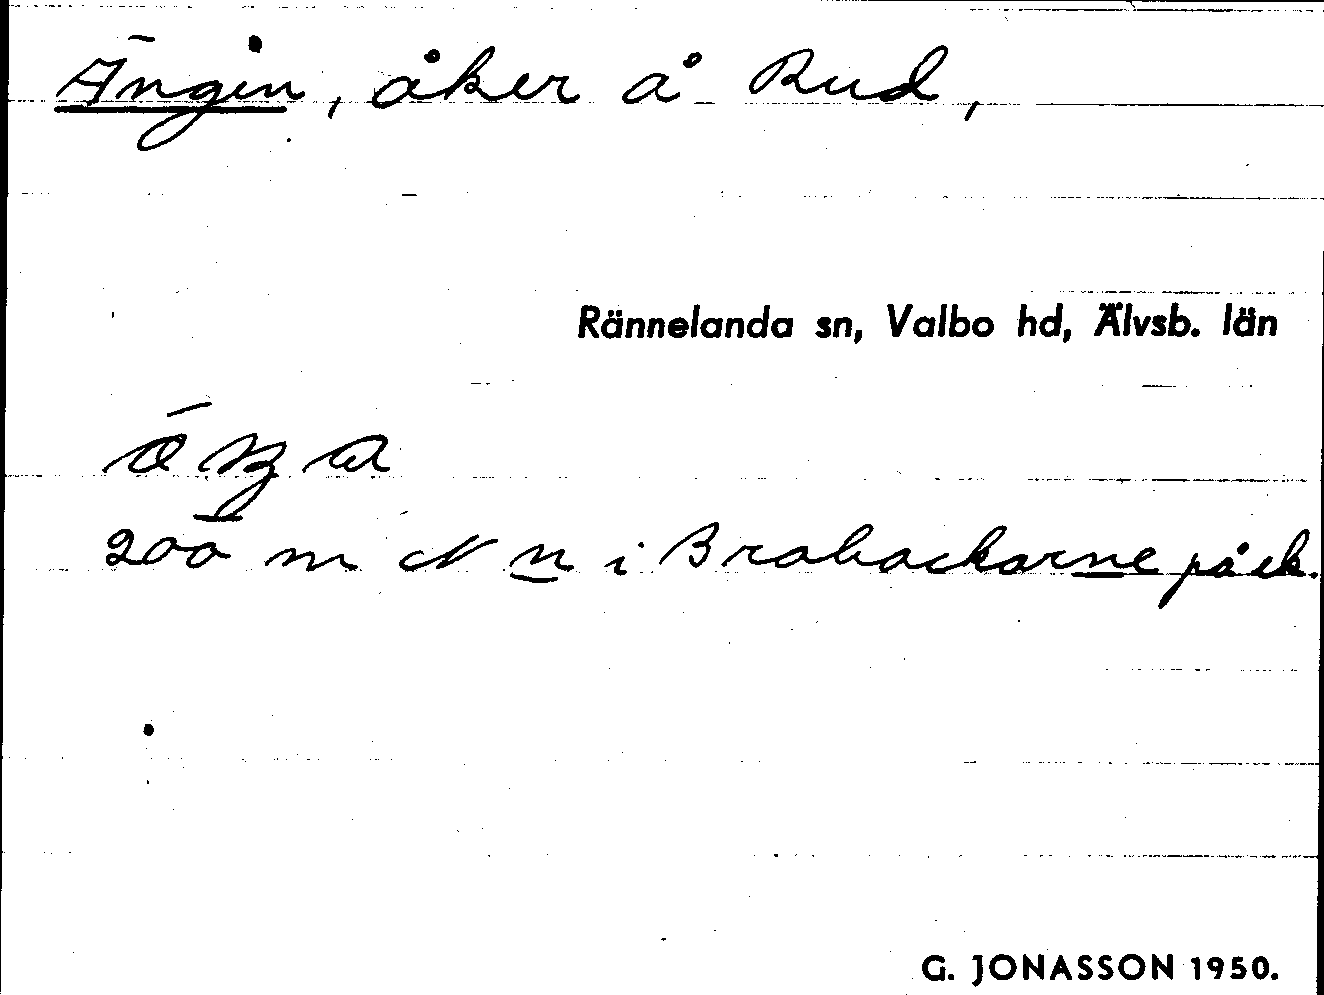 Ängen, åker å Rud,
Rännelanda sn, Valbo hd, Älvsb. län
200 m N n i Brobackarne på ek.
G. JONASSON 1950.